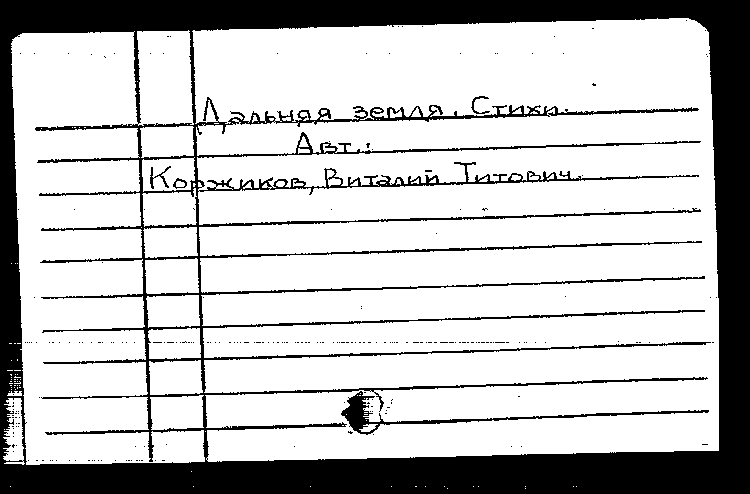 Дальняя земля. Стихи.
Авт.:
Коржиков, Виталий Титович.